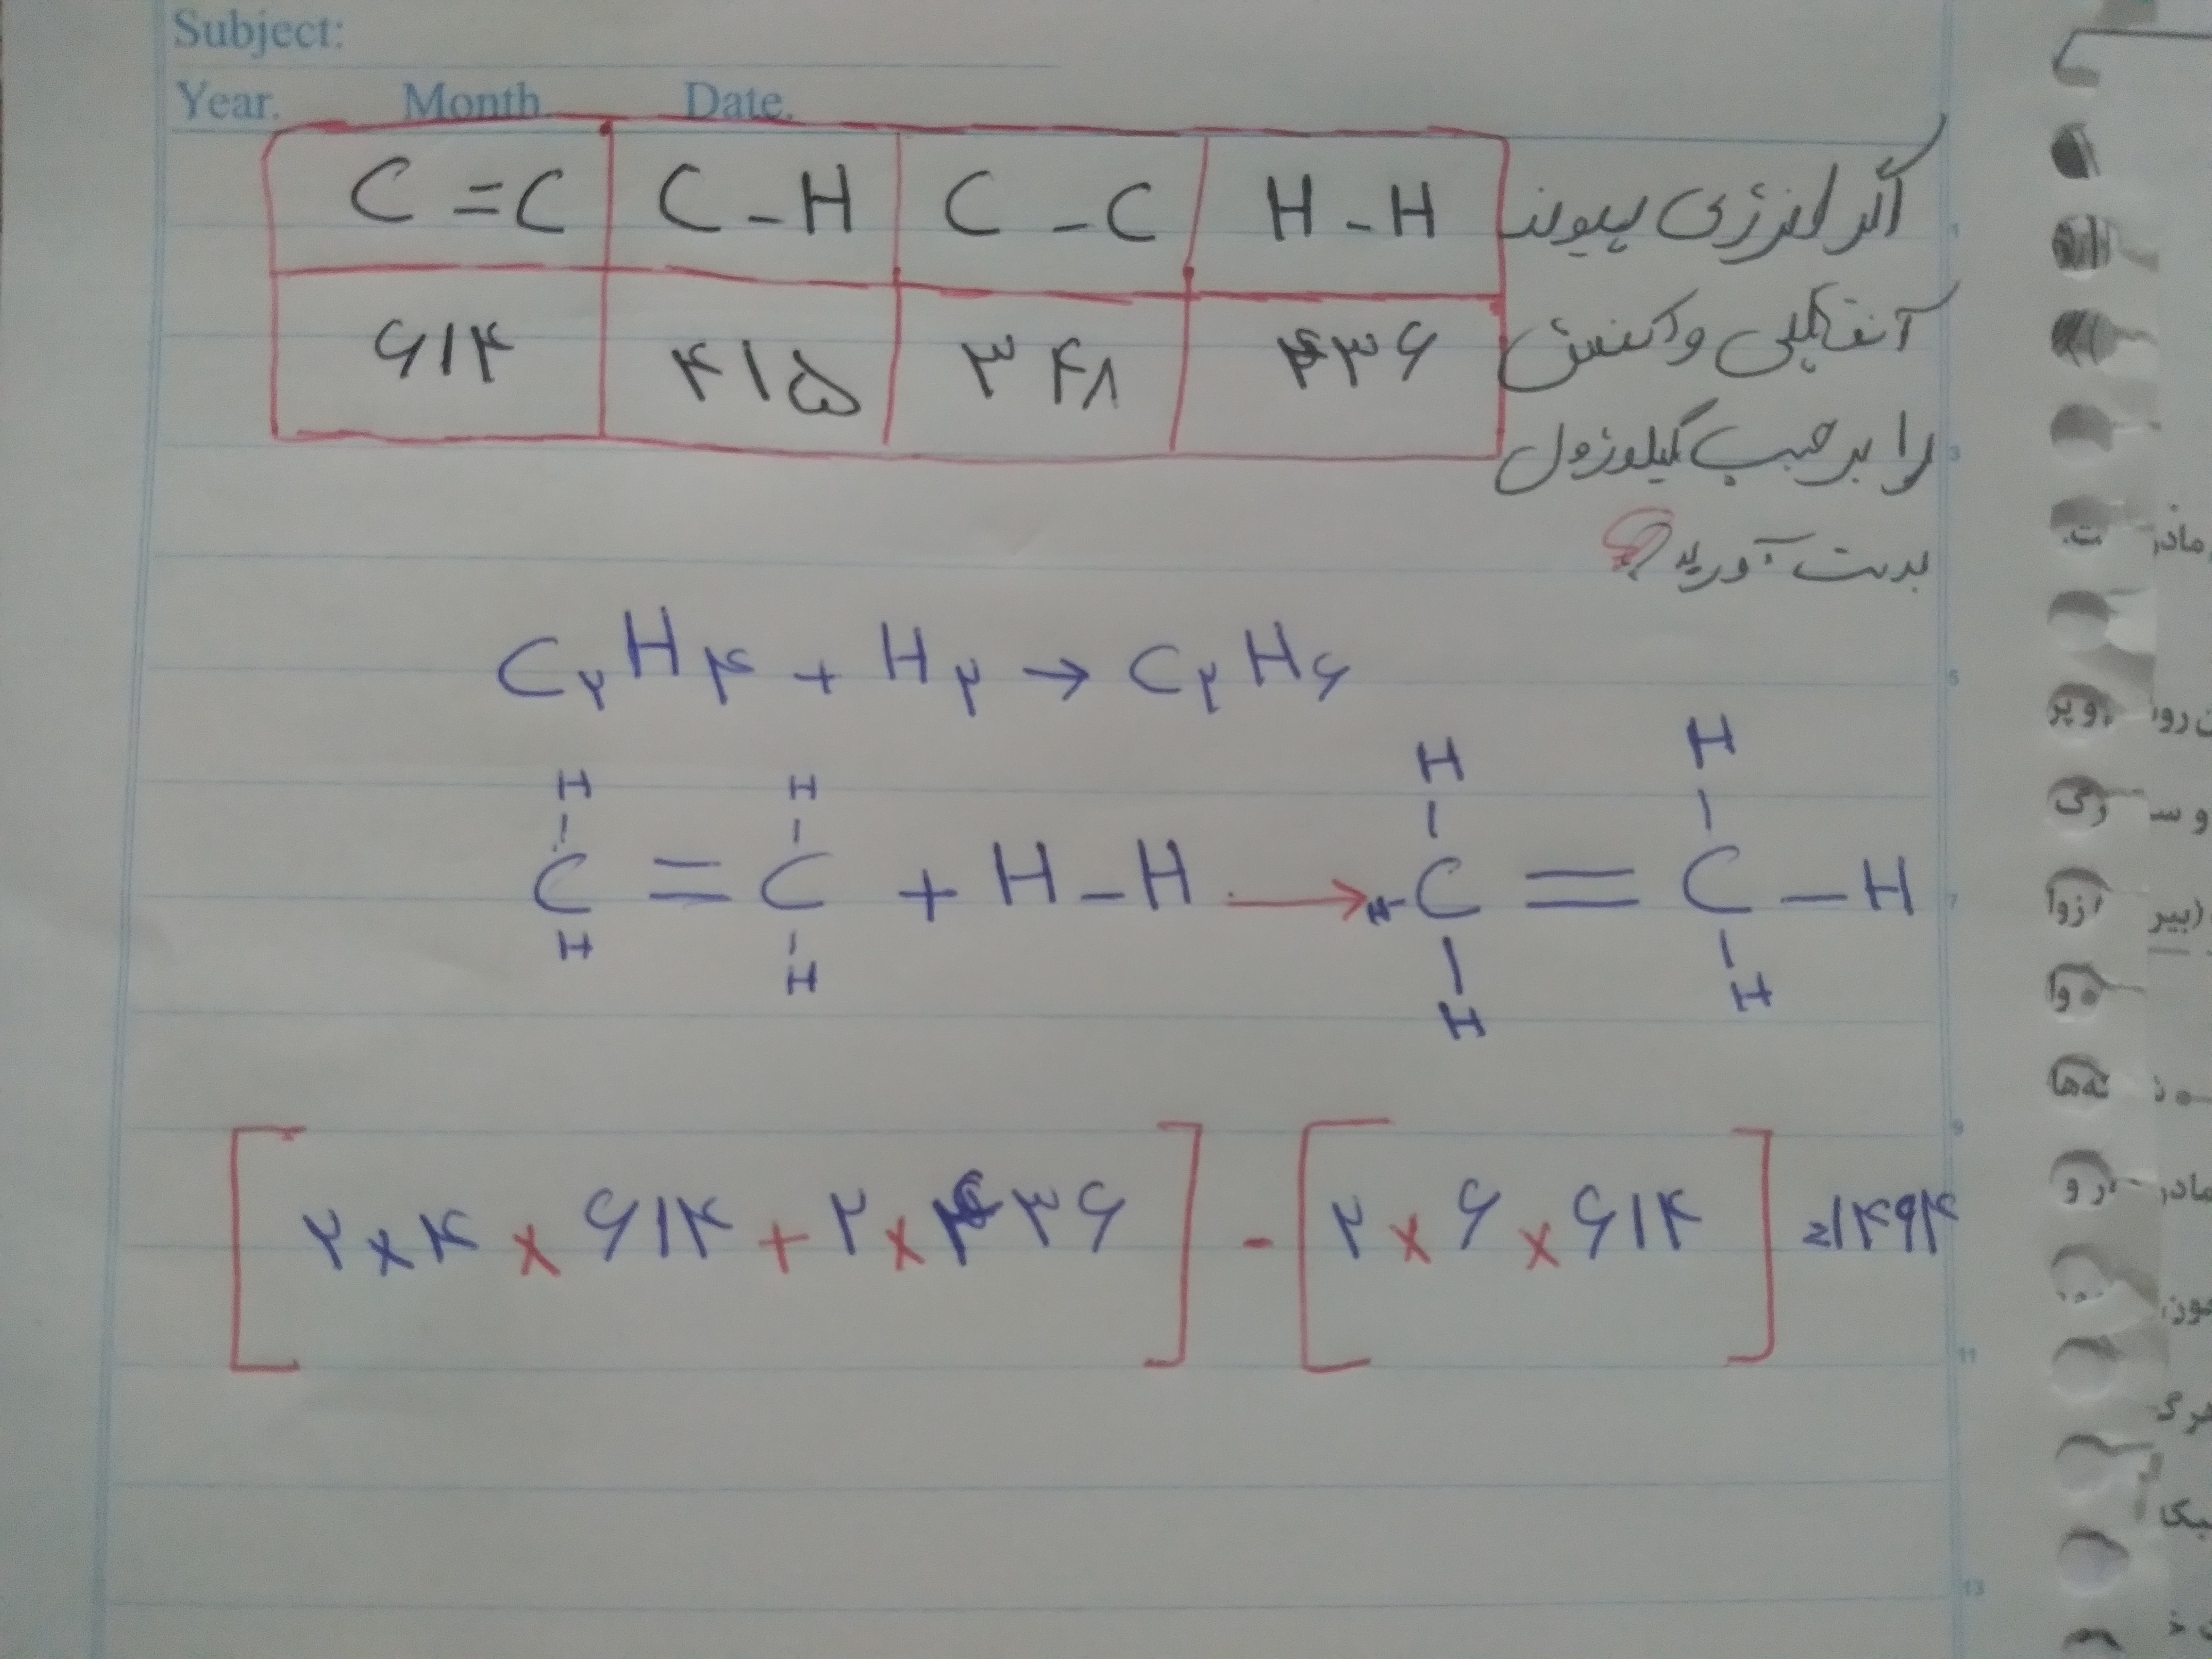 Subject:
Year. Month Date.
C=C C-H C-C H-H
۶۱۴ ۴۱۵ ۳۴۸ ۴۳۶
اگر انرژی پیوند
آنتالپی واکنش
را برحسب کیلوژول
بدست آورید؟
C₂H₄ + H₂ → C₂H₆
H H H H
C = C + H-H → H-C = C-H
H H H H
[۲×۴×۶۱۴+۲×۴۳۶] - [۲×۶×۶۱۴]